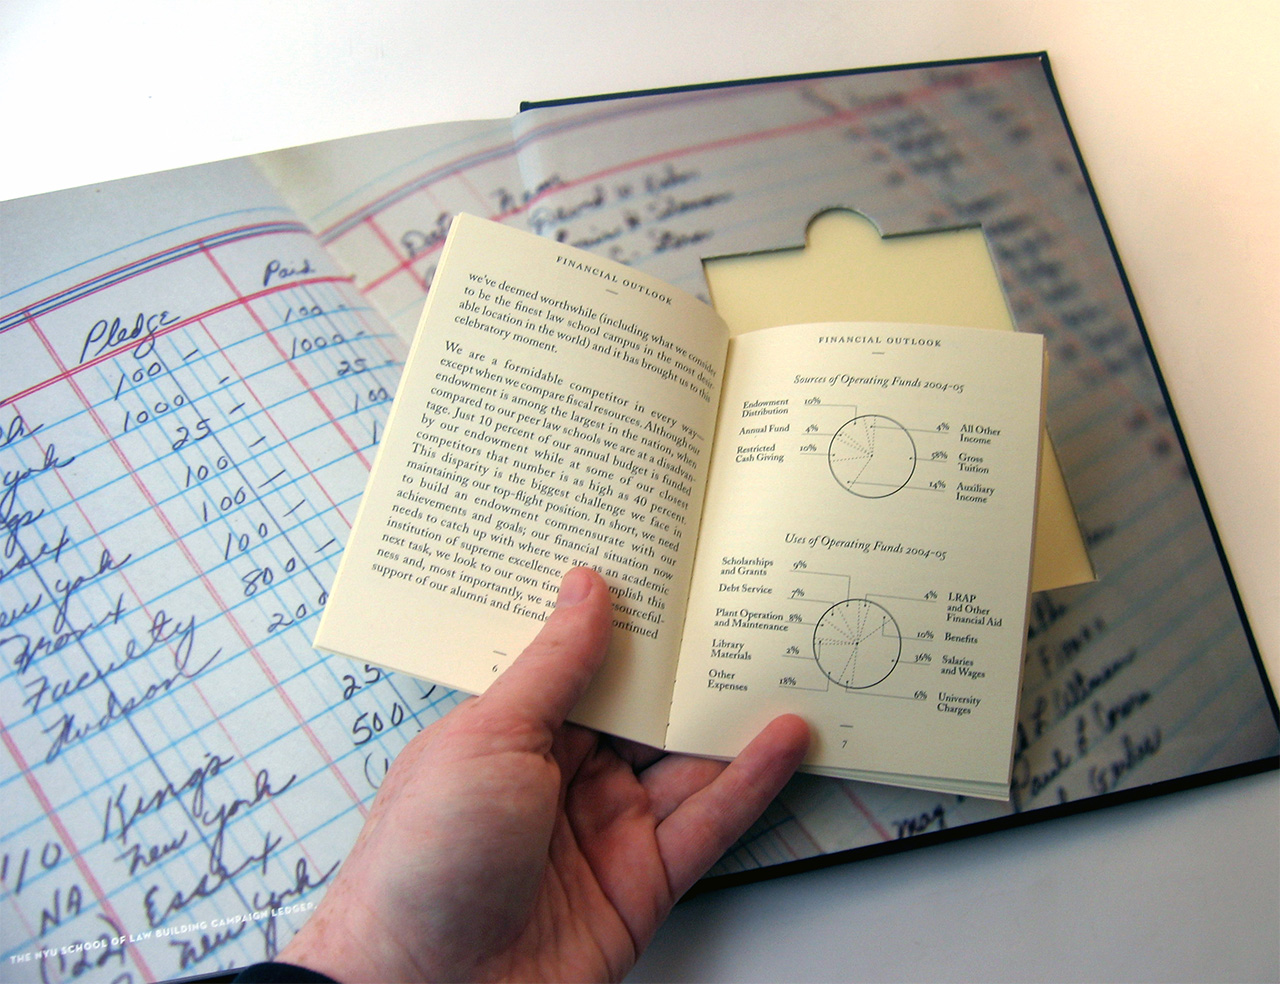 Paid
Pledge
100 -
100 -
1000 -
1000 -
25
25 -
100
100 -
100 -
100 -
800 -
200
25
500
york
New york
Bronx
Faculty
Hudson
Kings
110
new york
NA
Essex
(122)
new york
THE NYU SCHOOL OF LAW BUILDING CAMPAIGN LEDGER,
Date
Name
FINANCIAL OUTLOOK
we've deemed worthwhile (including what we consider
to be the finest law school campus in the most desir-
able location in the world) and it has brought us to this
celebratory moment.
We are a formidable competitor in every way—
except when we compare fiscal resources. Although our
endowment is among the largest in the nation, when
compared to our peer law schools we are at a disadvan-
tage. Just 10 percent of our annual budget is funded
by our endowment while at some of our closest
competitors that number is as high as 40 percent.
This disparity is the biggest challenge we face in
maintaining our top-flight position. In short, we need
to build an endowment commensurate with our
achievements and goals; our financial situation now
needs to catch up with where we are as an academic
institution of supreme excellence.
next task, we look to our own
mplish this
ness and, most importantly, we
esourceful-
support of our alumni and friend
ontinued
6
FINANCIAL OUTLOOK
Sources of Operating Funds 2004-05
Endowment Distribution 10%
Annual Fund 4%
Restricted Cash Giving 10%
4% All Other Income
58% Gross Tuition
14% Auxiliary Income
Uses of Operating Funds 2004-05
Scholarships and Grants 9%
Debt Service 7%
Plant Operation and Maintenance 8%
Library Materials 2%
Other Expenses 18%
4% LRAP and Other Financial Aid
10% Benefits
36% Salaries and Wages
6% University Charges
7